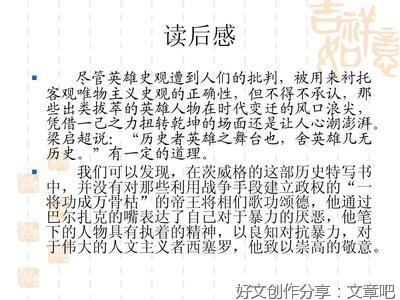 读后感
尽管英雄史观遭到人们的批判，被用来衬托
客观唯物主义史观的正确性，但不得不承认，那
些出类拔萃的英雄人物在时代变迁的风口浪尖，
凭借一己之力扭转乾坤的场面还是让人心潮澎湃。
梁启超说：“历史者英雄之舞台也，舍英雄几无
历史。”有一定的道理。
我们可以发现，在茨威格的这部历史特写书
中，并没有对那些利用战争手段建立政权的“一
将功成万骨枯”的帝王将相们歌功颂德，他通过
巴尔扎克的嘴表达了自己对于暴力的厌恶，他笔
下的人物具有执着的精神，以良知对抗暴力，对
于伟大的人文主义者西塞罗，他致以崇高的敬意。
吉祥如意
好文创作分享：文章吧